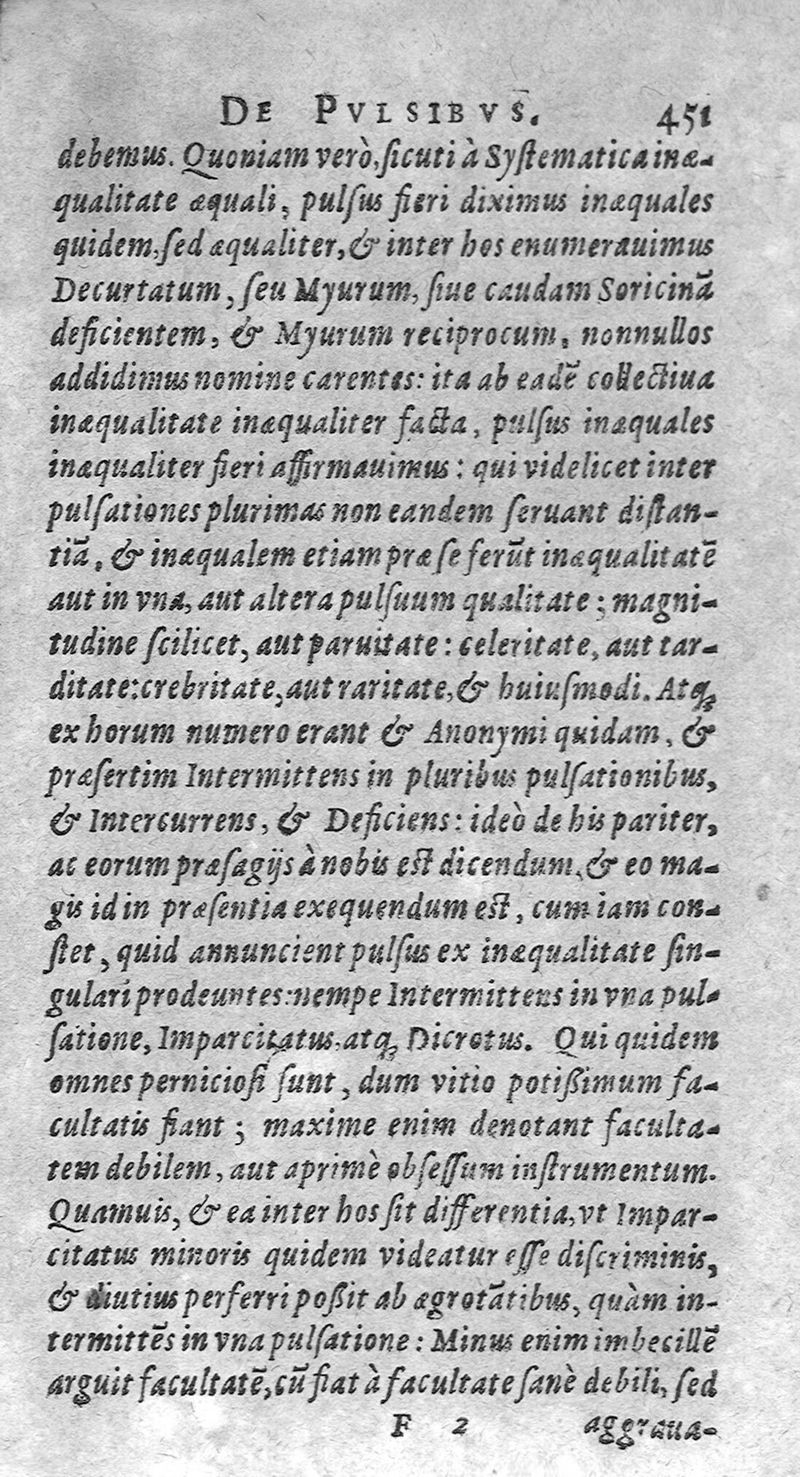 DE PVLSIBVS. 451
debemus. Quoniam verò, ſicuti à Syſtematica inæ-
qualitate æquali, pulſus fieri diximus inæquales
quidem, ſed æqualiter, & inter hos enumerauimus
Decurtatum, ſeu Myurum, ſiue caudam Soricinā
deficientem, & Myurum reciprocum, nonnullos
addidimus nomine carentes: ita ab eadē collectiua
inæqualitate inæqualiter facta, pulſus inæquales
inæqualiter fieri affirmauimus: qui videlicet inter
pulſationes plurimas non eandem ſeruant diſtan-
tiā, & inæqualem etiam præ ſe ferūt inæqualitatē
aut in vna, aut altera pulſuum qualitate; magni-
tudine ſcilicet, aut paruitate: celeritate, aut tar-
ditate: crebritate, aut raritate, & huiuſmodi. Atq;
ex horum numero erant & Anonymi quidam, &
præſertim Intermittens in pluribus pulſationibus,
& Intercurrens, & Deficiens: ideò de his pariter,
ac eorum præſagijs à nobis eſt dicendum, & eo ma-
gis id in præſentia exequendum eſt, cum iam con-
ſtet, quid annuncient pulſus ex inæqualitate ſin-
gulari prodeuntes: nempe Intermittens in vna pul-
ſatione, Imparcitatus, atq; Dicrotus. Qui quidem
omnes pernicioſi ſunt, dum vitio potißimum fa-
cultatis fiant; maxime enim denotant faculta-
tem debilem, aut aprimè obſeſſum inſtrumentum.
Quamuis, & ea inter hos ſit differentia, vt Impar-
citatus minoris quidem videatur eſſe diſcriminis,
& diutius perferri poßit ab ægrotātibus, quàm in-
termittēs in vna pulſatione: Minus enim imbecillē
arguit facultatē, cū fiat à facultate ſanè debili, ſed
F 2 aggraua-